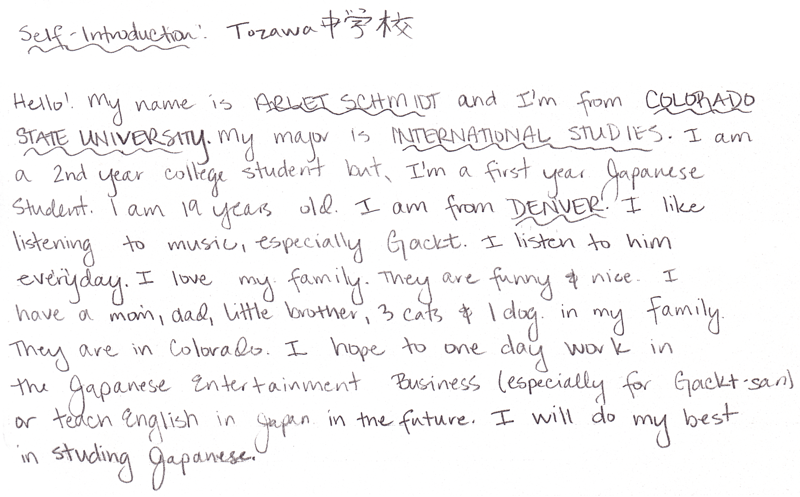 Self-Introduction: Tozawa中学校
Hello! My name is ARLET SCHMIDT and I'm from COLORADO
STATE UNIVERSITY. My major is INTERNATIONAL STUDIES. I am
a 2nd year college student but, I'm a first year Japanese
Student. I am 19 years old. I am from DENVER! I like
listening to music, especially Gackt. I listen to him
everyday. I love my family. They are funny & nice. I
have a mom, dad, little brother, 3 cats & 1 dog. in my family.
They are in Colorado. I hope to one day work in
the Japanese Entertainment Business (especially for Gackt-san)
or teach English in Japan in the future. I will do my best
in studing Japanese.